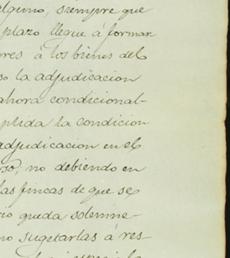 alguno, siempre que
plazo llegue á formar
ores á los bienes del
so la adjudicacion
ahora condicional-
mplida la condicion
adjudicacion en el
rso, no debiendo en
las fincas de que se
rio queda solemne
no sugetarlas á res-